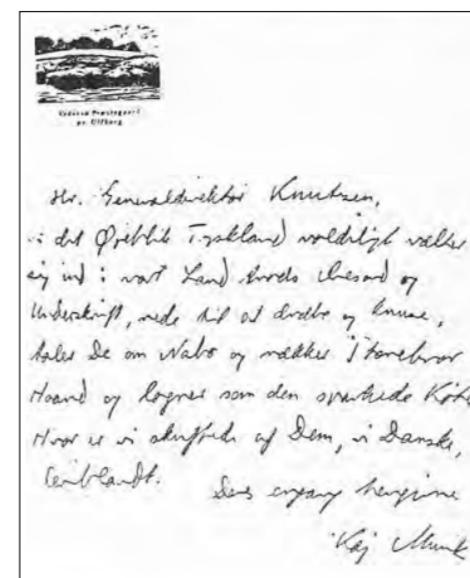 Vedersø Præstegaard
pr. Ulfborg
Hr. Generaldirektør Knutzen,
i det Øieblik Tyskland voldeligt vælter
sig ind i vort Land trods Æresord og
Underskrift, rede til at dræbe og knuse,
taler De om Nabo og rækker i
Haand og logrer som den sparkede Køter
Hvor er vi skuffede af Dem, vi Danske,
iblandt.
Deres engang hengivne
Kaj Munk